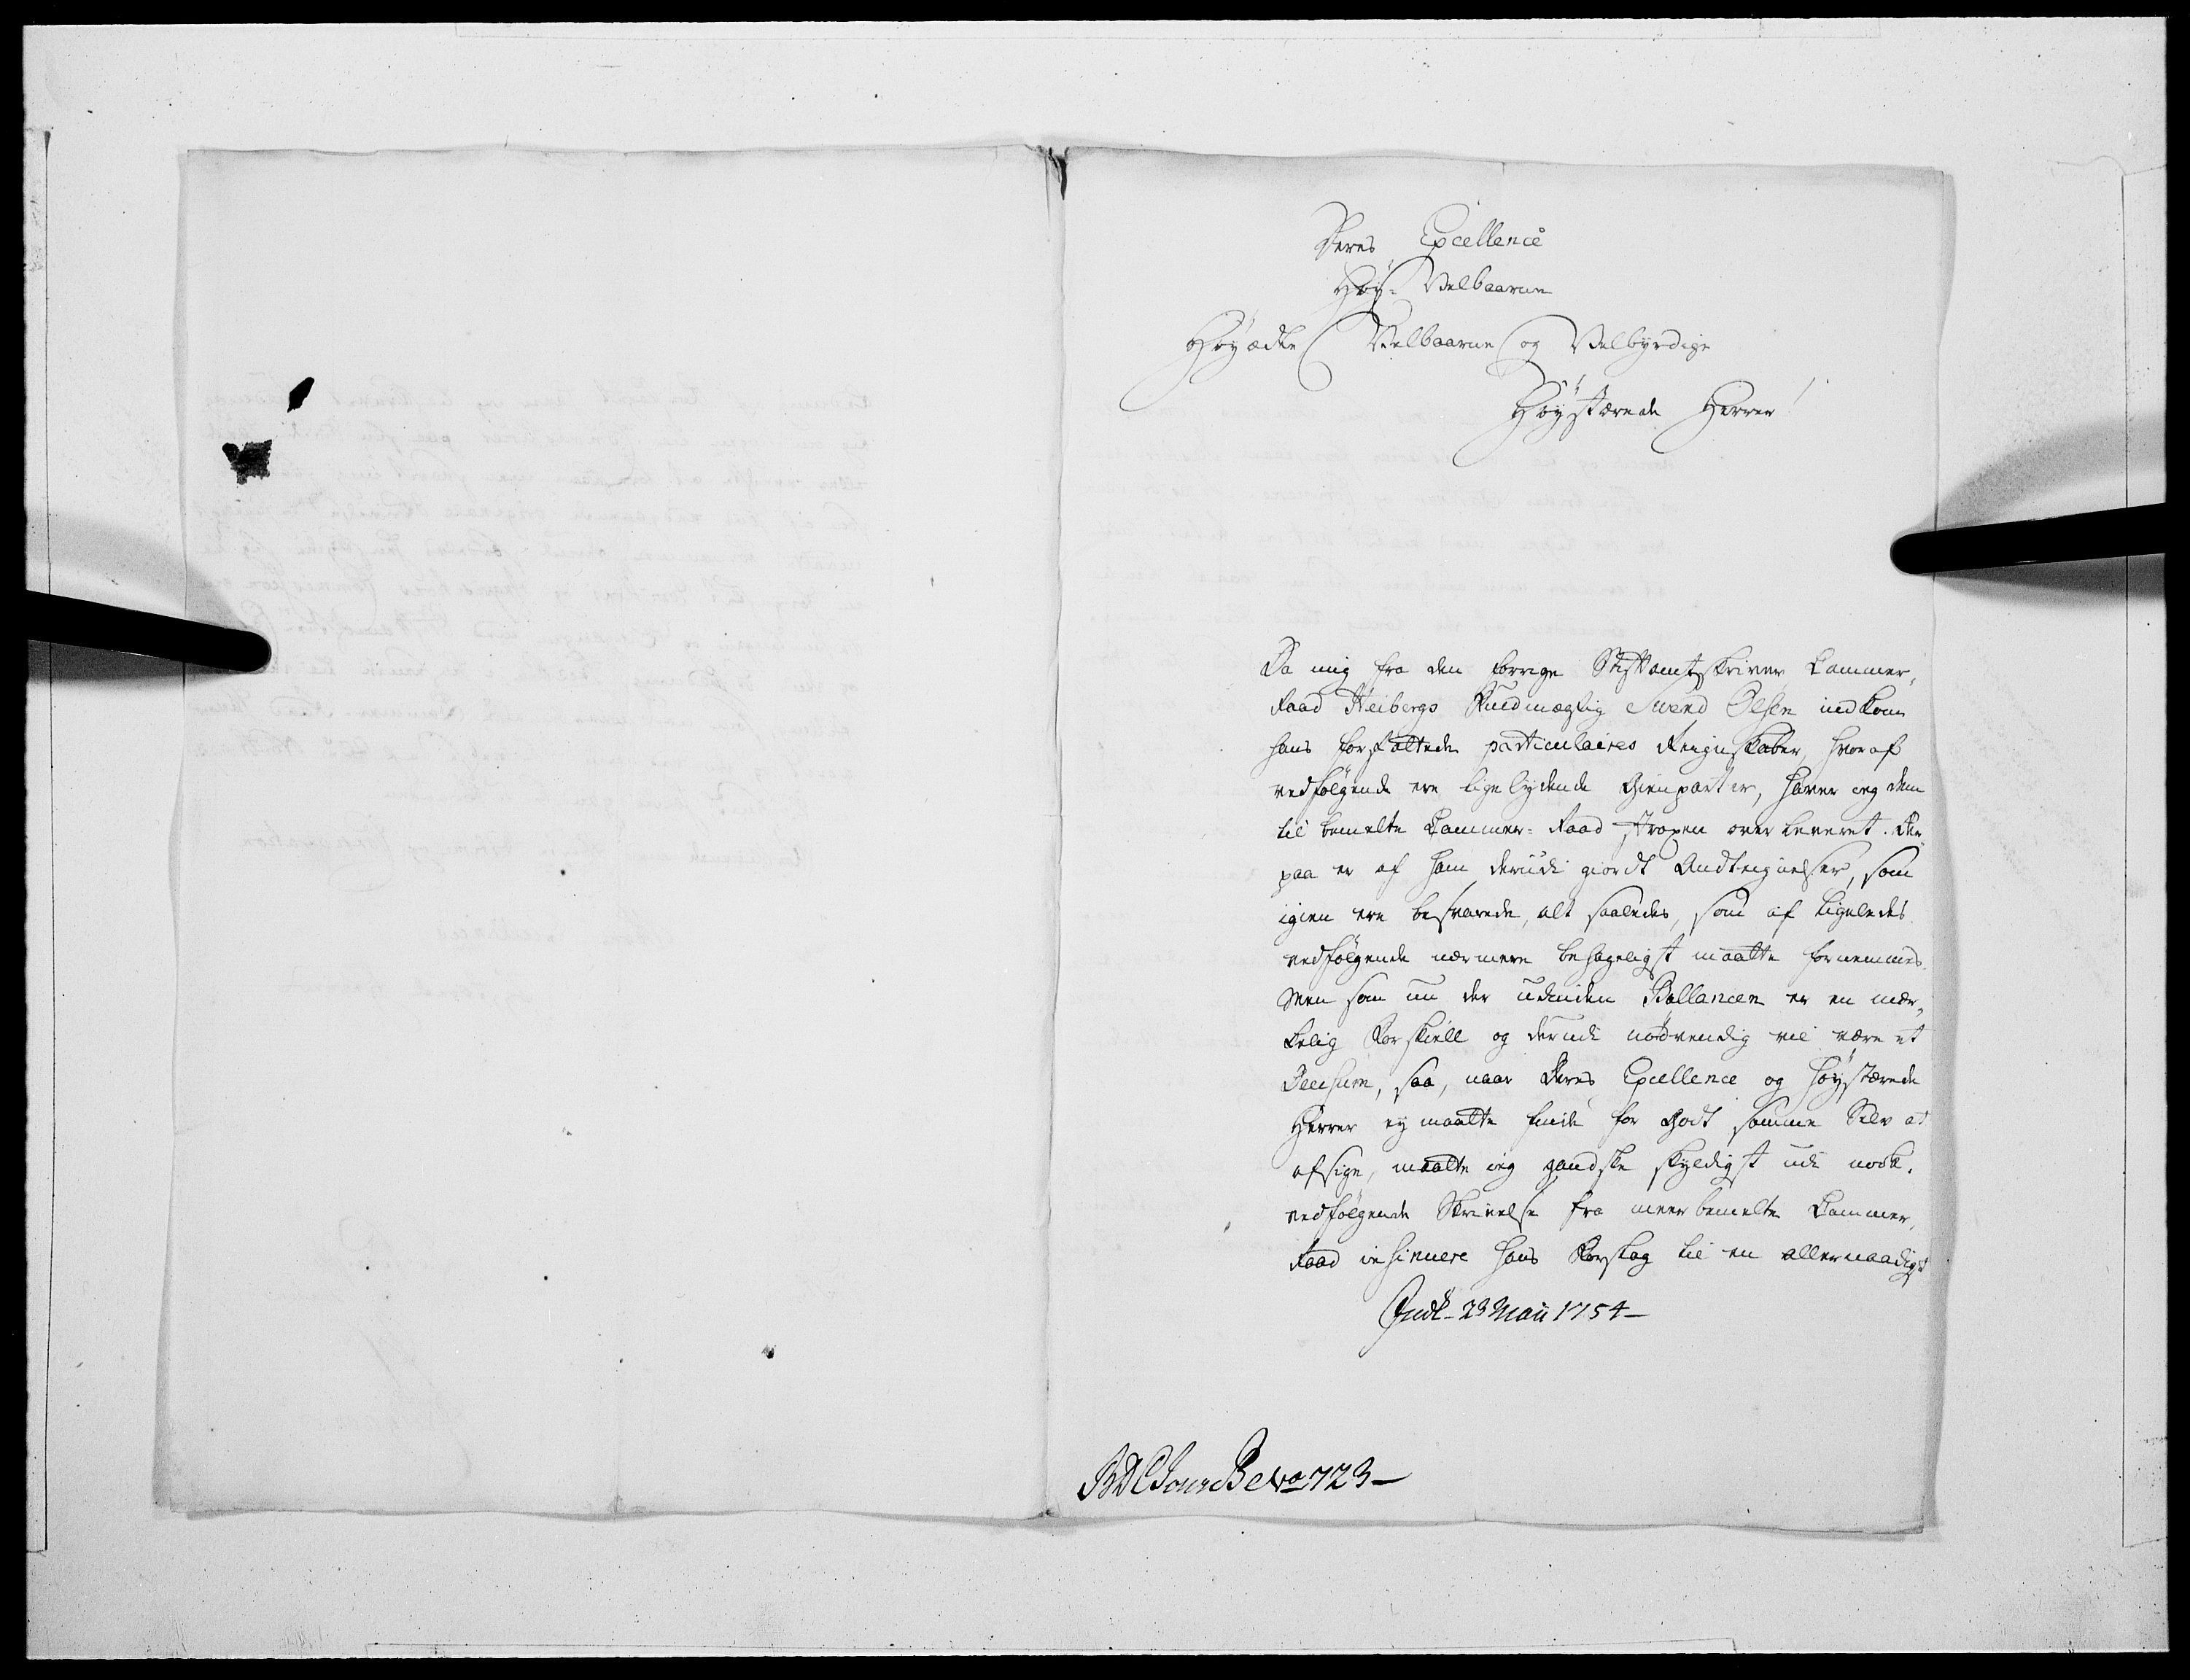 Deres Excellence
Høy-Velbaarne
Høyædle Velbaarne og Velbyrdige
Høystærede Herrer!
Da mig fra den forrige Stiftamtskriver Cammer-
Raad Heibergs Fuldmægtig Svend Olsen indkom
hans forfattede particulaires Reignskaber, hvoraf
vedfølgende ere ligelydende Gienparter, haver ieg dem
til bemelte Cammer-Raad overleveret. Der-
paa er af ham derudi giordt Andtegnelser, som
igien ere besvarede, alt saaledes, som af ligeledes
vedfølgende nærmere behageligst maatte fornemmes.
Men som nu der udinden Ballancen er en mær-
kelig Forskiell og derudi nødvendig vil være et
Decisum, saa, naar Deres Excellence og høystærede
Herrer ey maatte finde for Godt samme Selv at
afsige, maatte ieg gandske skyldigst udi nock-
vedfølgende Skrivelse fra meerbemelte Cammer-
Raad insinuere hans Forslag til en allernaadigst
Indk- 23 Maii 1754-
No 723-